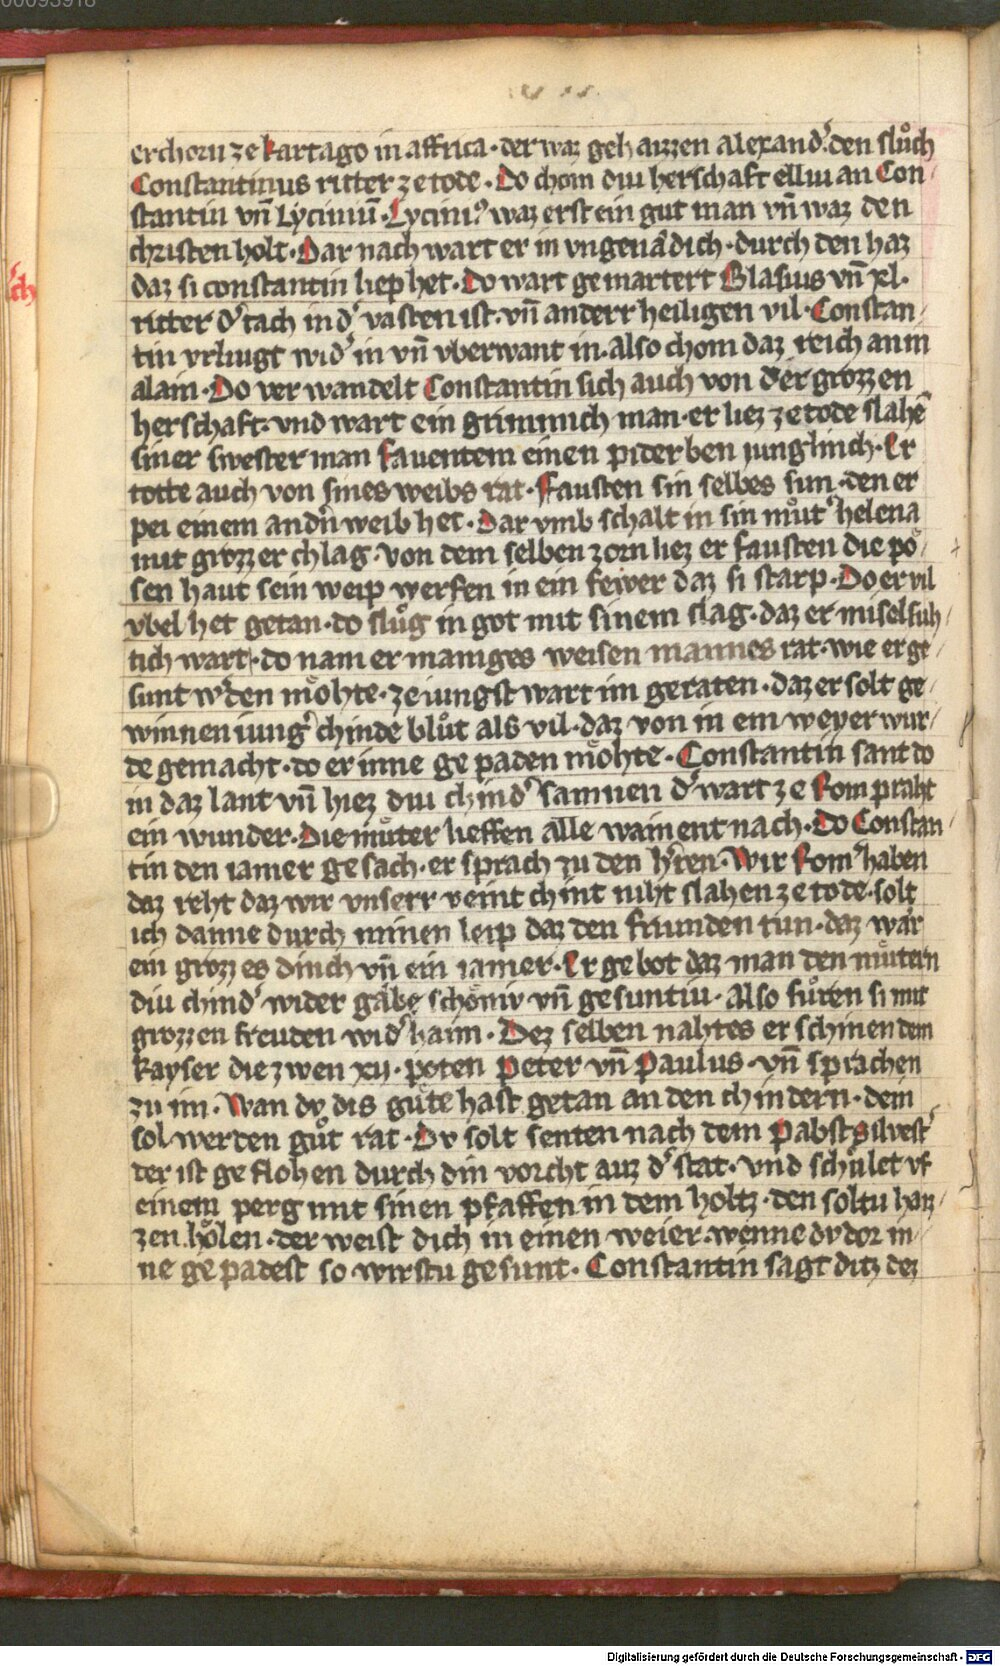 00093918
erchorn ze kartago in affrica · der waz gehaizzen alexand͛ · den slůch
Constantinus ritter ze tode · Do chom diu herschaft elliu an Con /
stantin vn̄ Lyciniū · Lycini᷒ waz erst ein gut man vn̄ waz den
christen holt · Dar nach wart er in vngenädich · durch den haz
daz si constantin liep het · Do wart gemartert Blasius vn̄ xl ·
ritter d͛ tach in d͛ vasten ist · vn̄ anderr heiligen vil · Constan /
tin vrliugt wid͛ in vn̄ vberwant in · also chom daz reich an in
alain · Do verwandelt Constantin sich auch von der grozzen
herschaft · vnd wart ein grimmich man · er liez ze tode slahē
siner swester man fauentem einen piderben jungslinch · Er
totte auch von sines weibs rat · Fausten sin selbes sun · den er
pei einem and͛n weib het · Dar vmb schalt in sin můt͛ helena
mit grozzer chlag · von dem selben zorn liez er fausten die pö /
sen haut sein weip werfen in ein feiwer daz si starp · Do er vil
vbel het getan · do slůg in got mit sinem slag · daz er miselsuh /
tich wart · do nam er maniges weisen mannes rat · wie er ge /
sunt w͛den möhte · ze iungst wart im geraten · daz er solt ge /
winnen iung͛ chinde blůt als vil · daz von in ein weyer wur /
de gemacht · do er inne gepaden möhte · Constantin sant do
in daz lant vn̄ hiez diu chind͛ samnen d͛ wart ze Rom praht
ein wunder · Die můter lieffen alle wainent nach · Do Constan /
tin den iamer gesach · er sprach zu den h͛ren · Wir Rom͛ haben
daz reht daz wir vnserr veint chint niht slahen ze tode · solt
ich danne durch minen leip daz den friunden tun · daz wär
ein grozzes dinch vn̄ ein iamer · Er gebot daz man den můtern
diu chind͛ wider gäbe schöniv vn̄ gesuntiu · Also fůren si mit
grozzen freuden wid͛ haim · Dez selben nahtes erschinen dem
kayser die zwen xij · poten Peter vn̄ Paulus · vn̄ sprachen
zu im · Wan dv dis güte hast getan an den chindern · dein
sol werden gůt rat · Dv solt senten nach dem Pabst Siluest͛
der ist geflohen durch din vorcht auz d͛ stat · vnd schůlet vf
einem perg mit sinen pfaffen in dem holtz · den soltu haiz /
zen hölen · der weist dich in einen weier · wenne dv dor in /
ne gepadest so wirstu gesunt · Constantin sagt ditz dez
Digitalisierung gefördert durch die Deutsche Forschungsgemeinschaft - DFG